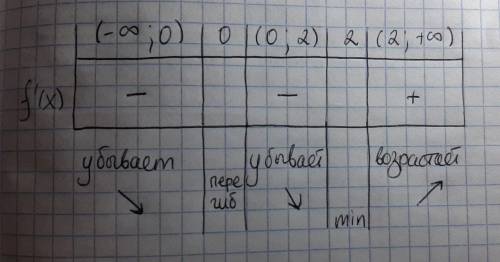 (-∞ ; 0) 0 (0 ; 2) 2 (2 ; +∞)
f'(x) − − +
убывает пере гиб убывает min возрастает